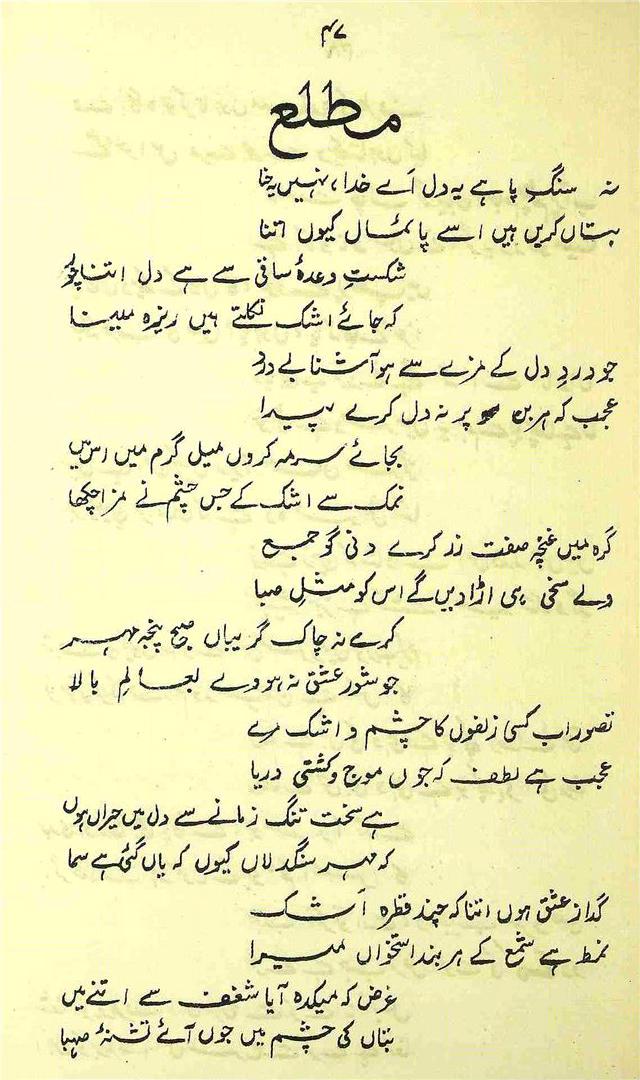 ۴۷
مطلع
نہ سنگِ پا ہے یہ دل اَے خدا، نہیں یہ حنا
بتاں کریں ہیں اسے پائمال کیوں اتنا
شکستِ وعدۂ ساقی سے ہے دل اتنا چور
کہ جائے اشک نکلتے ہیں ریزہ مینا
جو دردِ دل کے مزے سے ہو آشنا بے درد
عجب کہ ہر بن مو پر نہ دل کرے پیدا
بجائے سرمہ کروں میل گرم میں اس میں
نمک سے اشک کے جس چشم نے مزا چکھا
گرہ میں غنچہ صفت زر کرے دنی گو جمع
ولے سخی ہی اڑا دیں گے اس کو مثلِ صبا
کرے نہ چاک گریباں صبح پنجہ مہر
جو شورِ عشق نہ ہووے بعالمِ بالا
تصور اب کسی زلفوں کا چشم و اشک مرے
عجب ہے لطف کہ جوں موج و کشتی دریا
ہے سخت تنگ زمانے سے دل میں حیراں ہوں
کہ مہر سنگدلاں کیوں کہ یاں گئی ہے سما
گداز عشق ہوں اتنا کہ چند قطرہ اَشک
نمط ہے شمع کے ہر بند استخواں میرا
غرض کہ میکدہ آیا شغف سے اتنے میں
بتاں کی چشم میں جوں آئے تشنۂ صہبا